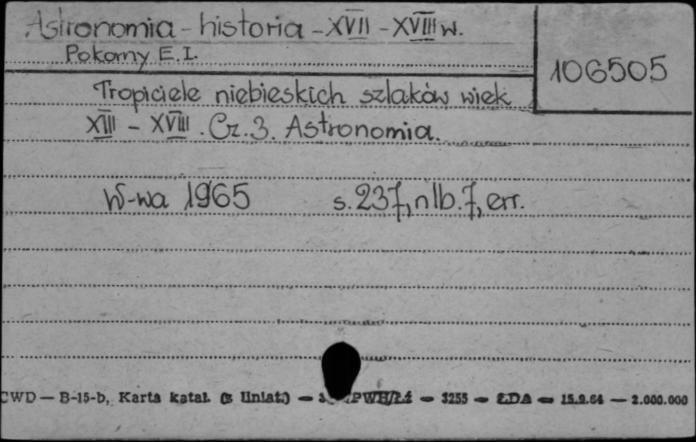 Astronomia - historia - XVII - XVIII w.
Pokorny E. I.
106505
Tropiciele niebieskich szlaków wiek
XIII - XVIII. Cz. 3. Astronomia.
W-wa 1965 s. 237, nlb. 7, err.
CWD — B-15-b, Karta katal. (z liniat.) — PWH/Łź — 3255 — ŁDA — 15.9.64 — 2.000.000